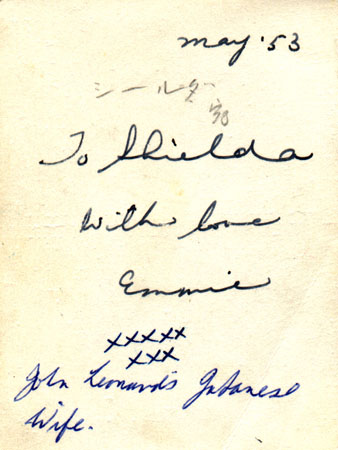 may '53
シールダ
To Shielda
With love
Emmie
xxxxx
xxx
John Leonard's Japanese
Wife.